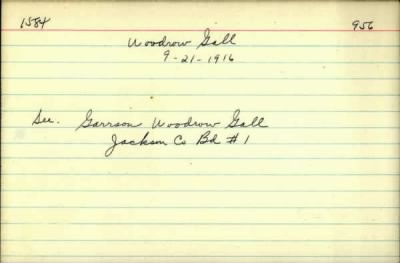 1584 956
Woodrow Gall
9-21-1916
See. Garrson Woodrow Gall
Jackson Co Bd #1